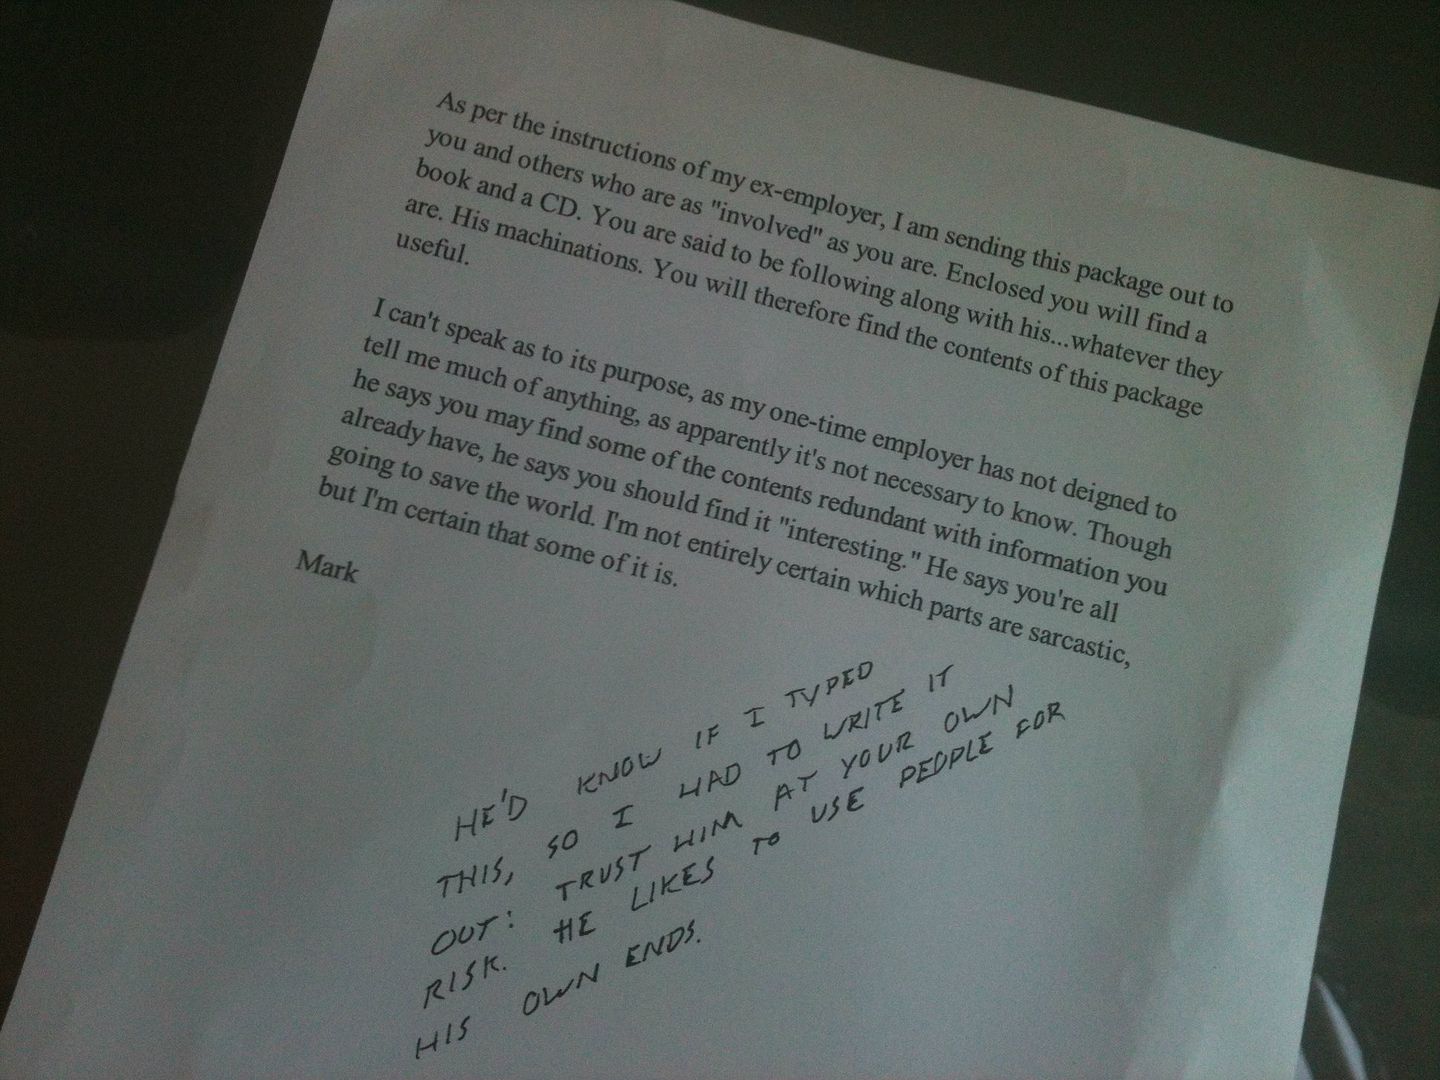 As per the instructions of my ex-employer, I am sending this package out to
you and others who are as "involved" as you are. Enclosed you will find a
book and a CD. You are said to be following along with his...whatever they
are. His machinations. You will therefore find the contents of this package
useful.
I can't speak as to its purpose, as my one-time employer has not deigned to
tell me much of anything, as apparently it's not necessary to know. Though
he says you may find some of the contents redundant with information you
already have, he says you should find it "interesting." He says you're all
going to save the world. I'm not entirely certain which parts are sarcastic,
but I'm certain that some of it is.
Mark
HE'D KNOW IF I TYPED
THIS, SO I HAD TO WRITE IT
OUT: TRUST HIM AT YOUR OWN
RISK. HE LIKES TO USE PEOPLE FOR
HIS OWN ENDS.